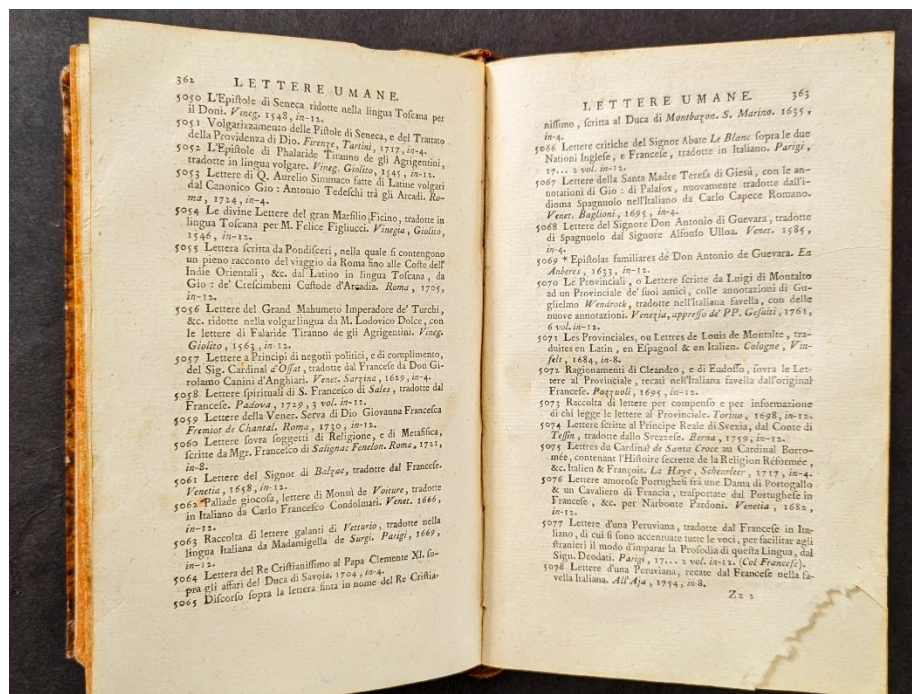 362 LETTERE UMANE.
5050 L'Epiſtole di Seneca ridotte nella lingua Toscana per
il Doni. Vineg. 1548, in-12.
5051 Volgarizzamento delle Piſtole di Seneca, e del Trattato
della Providenza di Dio. Firenze, Tartini, 1717, in-4.
5052 L'Epiſtole di Phalaride Tiranno de gli Agrigentini,
tradotte in lingua volgare. Vineg. Giolito, 1545, in-12.
5053 Lettere di Q. Aurelio Simmaco fatte di Latine volgari
dal Canonico Gio: Antonio Tedeſchi trà gli Arcadi. Ro-
ma, 1724, in-4.
5054 Le divine Lettere del gran Marſilio Ficino, tradotte in
lingua Toſcana per M. Felice Figliucci. Vinegia, Giolito,
1546, in-12.
5055 Lettera ſcritta da Pondiſceri, nella quale ſi contengono
un pieno racconto del viaggio da Roma fino alle Coſte dell'
Indie Orientali, &c. dal Latino in lingua Toſcana, da
Gio: de' Creſcimbeni Cuſtode d'Arcadia. Roma, 1705,
in-12.
5056 Lettere del Grand Mahumeto Imperadore de' Turchi,
&c. ridotte nella volgar lingua da M. Lodovico Dolce, con
le lettere di Falaride Tiranno de gli Agrigentini. Vineg.
Giolito, 1563, in-12.
5057 Lettere a Principi di negotii politici, e di complimento,
del Sig. Cardinal d'Oſſat, tradotte dal Franceſe da Don Gi-
rolamo Canini d'Anghiari. Venet. Sarzina, 1629, in-4.
5058 Lettere ſpirituali di S. Franceſco di Sales, tradotte dal
Franceſe. Padova, 1729, 3 vol. in-12.
5059 Lettere della Vener. Serva di Dio Giovanna Franceſca
Fremiot de Chantal. Roma, 1730, in-12.
5060 Lettere ſovra ſoggetti di Religione, e di Metafiſica,
ſcritte da Mgr. Franceſco di Salignac Fenelon. Roma, 1721,
in-8.
5061 Lettere del Signor di Balzac, tradotte dal Franceſe.
Venetia, 1658, in-12.
5062 Pallade giocoſa, lettere di Monsù de Voiture, tradotte
in Italiano da Carlo Franceſco Condolmari. Venet. 1666,
in-12.
5063 Raccolta di lettere galanti di Vetturio, tradotte nella
lingua Italiana da Madamigella de Surgi. Parigi, 1669,
in-12.
5064 Lettera del Re Criſtianiſſimo al Papa Clemente XI. ſo-
pra gli affari del Duca di Savoia. 1704, in-4.
5065 Diſcorſo ſopra la lettera finta in nome del Re Criſtia-
LETTERE UMANE. 363
niſſimo, ſcritta al Duca di Montbazon. S. Marino. 1635,
in-4.
5066 Lettere critiche del Signor Abate Le Blanc ſopra le due
Nationi Ingleſe, e Franceſe, tradotte in Italiano. Parigi,
17... 2 vol. in-12.
5067 Lettere della Santa Madre Tereſa di Gieſù, con le an-
notationi di Gio: di Palafox, nuovamente tradotte dall'i-
dioma Spagnuolo nell'Italiano da Carlo Capece Romano.
Venet. Baglioni, 1695, in-4.
5068 Lettere del Signore Don Antonio di Guevara, tradotte
di Spagnuolo dal Signore Alfonſo Ulloa. Venet. 1585,
in-4.
5069 * Epiſtolas familiares de Don Antonio de Guevara. En
Anberes, 1633, in-12.
5070 Le Provinciali, o Lettere ſcritte da Luigi di Montalto
ad un Provinciale de' ſuoi amici, colle annotazioni di Gu-
glielmo Wendrock, tradotte nell'Italiana favella, con delle
nuove annotazioni. Venezia, appreſſo de' PP. Geſuiti, 1761,
6 vol. in-12.
5071 Les Provinciales, ou Lettres de Louis de Montalte, tra-
duites en Latin, en Eſpagnol & en Italien. Cologne, Vin-
felt, 1684, in-8.
5072 Ragionamenti di Cleandro, e di Eudoſſo, ſovra le Let-
tere al Provinciale, recati nell'Italiana favella dall'original
Franceſe. Pozzuoli, 1695, in-12.
5073 Raccolta di lettere per compenſo e per informazione
di chi legge le lettere al Provinciale. Torino, 1698, in-12.
5074 Lettere ſcritte al Principe Reale di Svezia, dal Conte di
Teſſin, tradotte dallo Svezzeſe. Berna, 1759, in-12.
5075 Lettres du Cardinal de Santa Croce au Cardinal Borro-
mée, contenant l'Hiſtoire secrette de la Religion Réformée,
&c. Italien & François. La Haye, Scheurleer, 1717, in-4.
5076 Lettere amoroſe Portugheſi frà une Dama di Portogallo
& un Cavaliero di Francia, traſportate dal Portugheſe in
Franceſe, &c. per Narbonte Pardoni. Venetia, 1682,
in-12.
5077 Lettere d'una Peruviana, tradotte dal Franceſe in Ita-
liano, di cui ſi ſono accennate tutte le voci, per facilitar agli
ſtranieri il modo d'imparar la Proſodia di queſta Lingua, dal
Sign. Deodati. Parigi, 17... 2 vol. in-12. (Col Franceſe).
5078 Lettere d'una Peruviana, recate dal Franceſe nella fa-
vella Italiana. All'Aja, 1754, in-8.
Zz 2